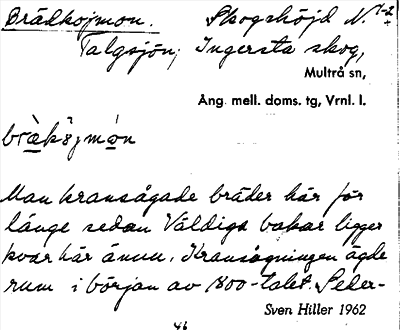 Brädkojmon. Skogshöjd N. 1-2
Talgsjön, Ingersta skog,
Multrå sn,
Ång. mell. doms. tg, Vrnl. l.
Man kransågade bräder här för
länge sedan Väldiga bakar ligger
kvar här ännu. Kransågningen ägde
rum i början av 1800-talet. Seder-
Sven Hiller 1962
46